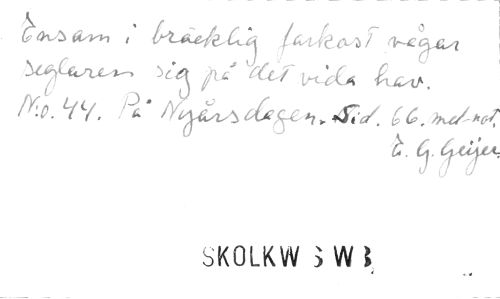 Ensam i bräcklig farkost vågar
seglaren sig på det vida hav.
N:o. 44. På Nyårsdagen. Sid. 66. med not.
E. G. Geijer.
SKOLKW S W B